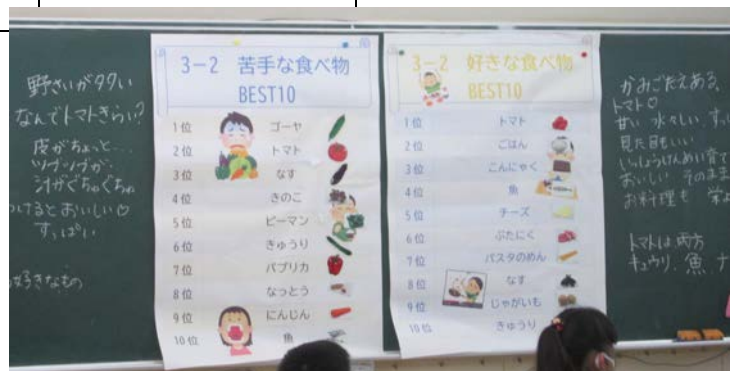 野さいがタタい
なんでトマトきらい?
皮がちょっと…
ツブツブが、
汁がぐちゃぐちゃ
つけるとおいしい♡
すっぱい
好きなもの
3-2 苦手な食べ物
BEST10
1位 ゴーヤ
2位 トマト
3位 なす
4位 きのこ
5位 ピーマン
6位 きゅうり
7位 パプリカ
8位 なっとう
9位 にんじん
10位 魚
3-2 好きな食べ物
BEST10
1位 トマト
2位 ごはん
3位 こんにゃく
4位 魚
5位 チーズ
6位 ぶたにく
7位 パスタのめん
8位 なす
9位 じゃがいも
10位 きゅうり
かみごたえある、
トマト♡
甘い 水々しい
見た目もいい
いっしょうけんめい育て
おいしい そのまま
お料理も
トマトは両方
キュウリ、魚、ナ